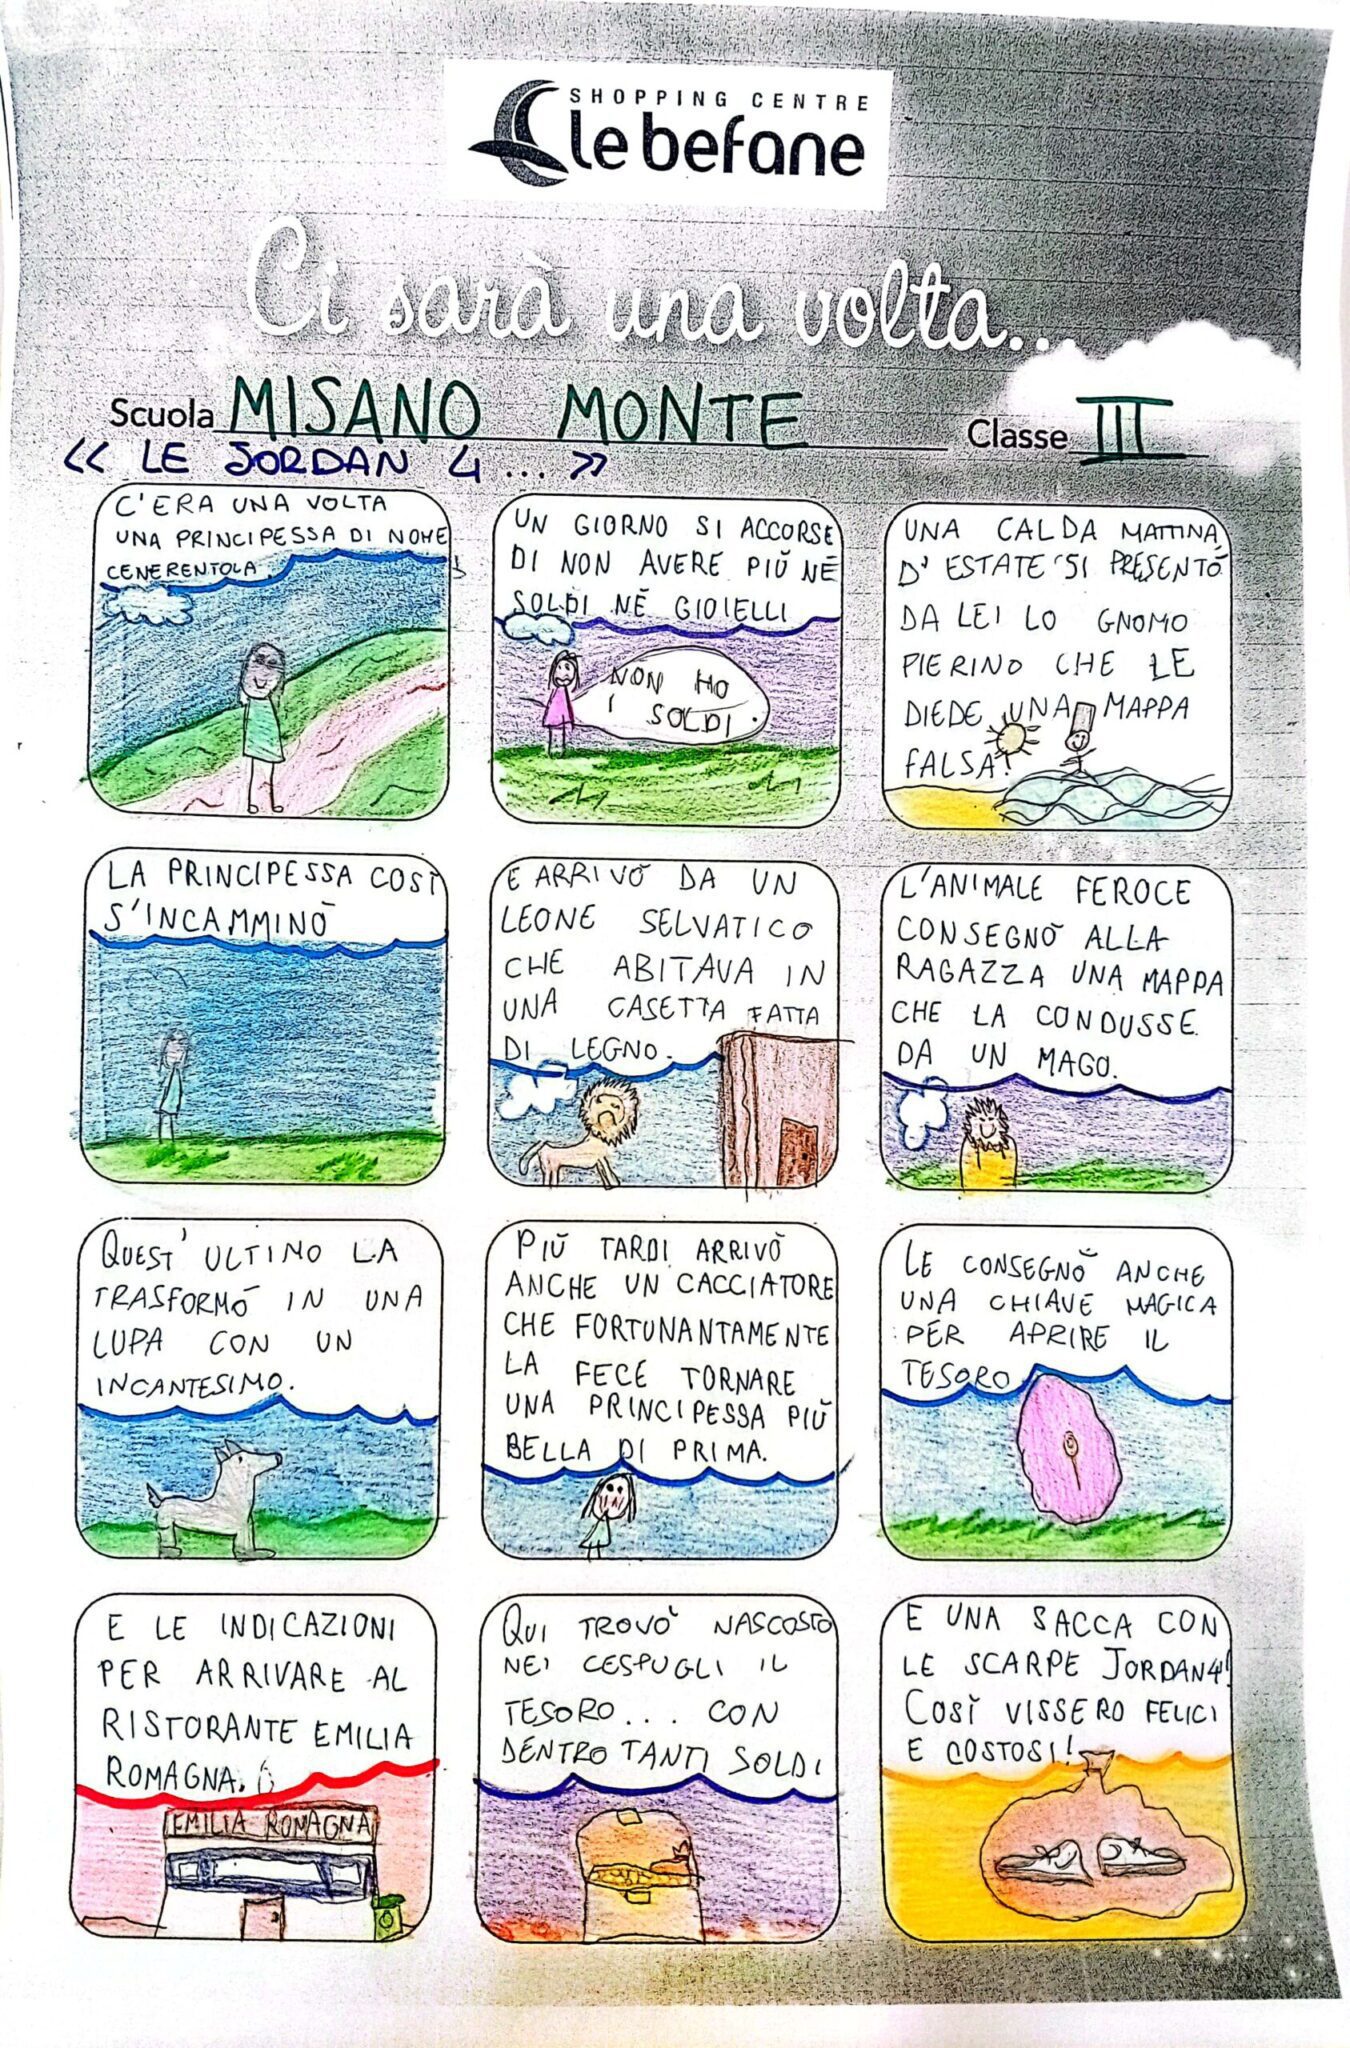 SHOPPING CENTRE
le befane
Ci sarà una volta...
Scuola MISANO MONTE Classe III
<< LE JORDAN 4 ... >>
C'ERA UNA VOLTA
UNA PRINCIPESSA DI NOME
CENERENTOLA
UN GIORNO SI ACCORSE
DI NON AVERE PIÙ NÉ
SOLDI NÉ GIOIELLI
NON HO
I SOLDI.
UNA CALDA MATTINA
D'ESTATE SI PRESENTÒ
DA LEI LO GNOMO
PIERINO CHE LE
DIEDE UNA MAPPA
FALSA.
LA PRINCIPESSA COSÌ
S'INCAMMINÒ
E ARRIVÒ DA UN
LEONE SELVATICO
CHE ABITAVA IN
UNA CASETTA FATTA
DI LEGNO.
L'ANIMALE FEROCE
CONSEGNÒ ALLA
RAGAZZA UNA MAPPA
CHE LA CONDUSSE
DA UN MAGO.
QUEST'ULTIMO LA
TRASFORMÒ IN UNA
LUPA CON UN
INCANTESIMO.
PIÙ TARDI ARRIVÒ
ANCHE UN CACCIATORE
CHE FORTUNANTAMENTE
LA FECE TORNARE
UNA PRINCIPESSA PIÙ
BELLA DI PRIMA.
LE CONSEGNÒ ANCHE
UNA CHIAVE MAGICA
PER APRIRE IL
TESORO
E LE INDICAZIONI
PER ARRIVARE AL
RISTORANTE EMILIA
ROMAGNA.
EMILIA ROMAGNA
QUI TROVÒ NASCOSTO
NEI CESPUGLI IL
TESORO... CON
DENTRO TANTI SOLDI
E UNA SACCA CON
LE SCARPE JORDAN 4!
COSÌ VISSERO FELICI
E COSTOSI!